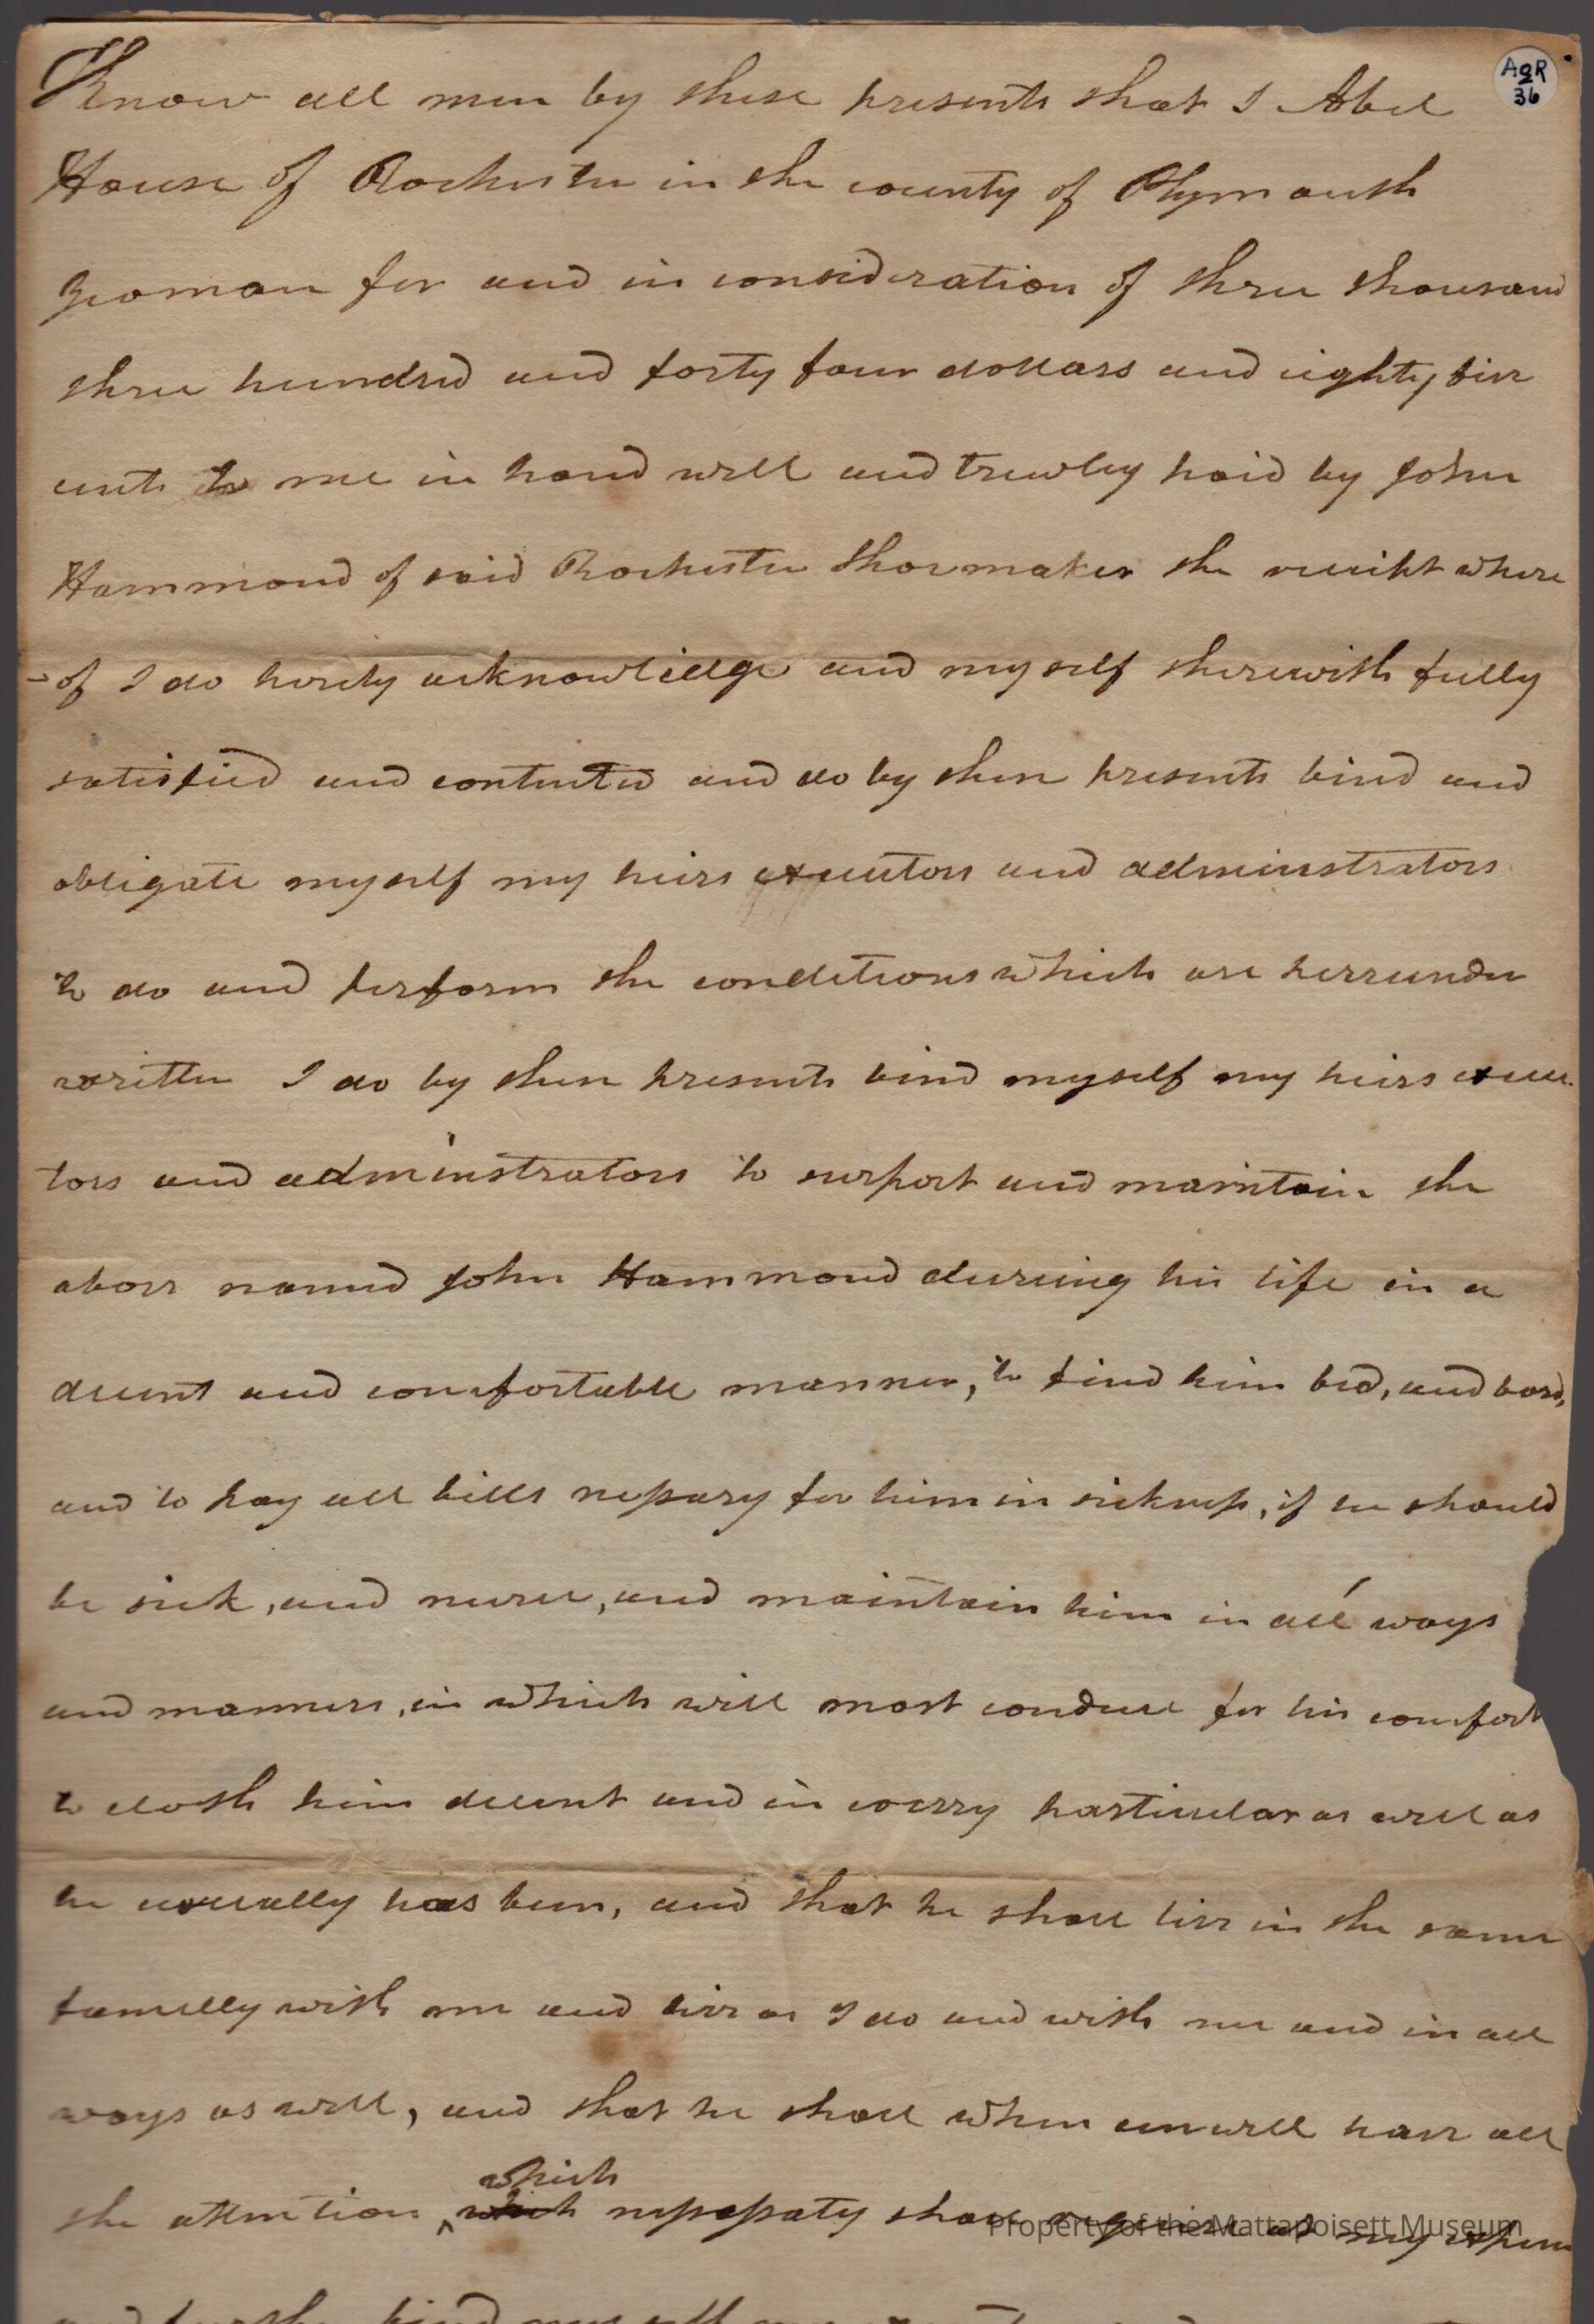 AgR
36
Know all men by these presents that I Abel
House of Rochester in the county of Plymouth
yeoman for and in consideration of three thousand
three hundred and forty four dollars and eighty five
cents to me in hand well and truwley paid by John
Hammond of said Rochester Shoemaker the receipt where
-of I do hereby acknowlidge and myself therewith fully
satisfied and contented and do by these presents bind and
obligate myself my heirs executors and adminstrators
to do and perform the conditions which are hereunder
written I do by these presents bind myself my heirs execu-
tors and adminstrators to surport and maintain the
above named John Hammond during his life in a
decent and comfortable manner, to find him bed, and bord,
and to pay all bills nessary for him in sickness, if he should
be sick, and nurse, and maintain him in all ways
and manners, in which will most conduce for his comfort
to cloth him decent and in every particular as well as
he usually has been, and that he shall live in the same
famelly with me and live as I do and with me and in all
ways as well, and that he shall when unwell have all
which
the attention which nessessaty shall require at my expense
and further bind myself my
Property of the Mattapoisett Museum